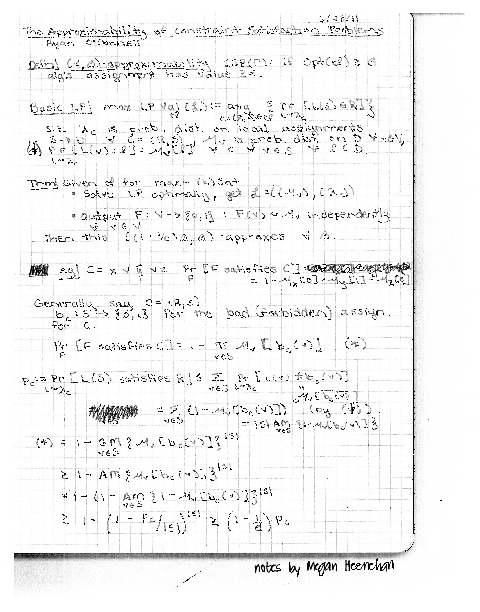 The Approximability of Constraint Satisfaction Problems
Ryan O'Donnell
Defn] (α, β)-approximability CSP(Γ): if Opt(φ) ≥ β
alg's assignment has value ≥ α.
Basic LP] max LP Val
s.t. λc is prob. dist. on local assignments
S → D ∀ C = (R, S), μv is prob. dist. on D ∀ v ∈ V,
Thm] Given φ for max-(k)Sat
• Solve LP optimally, get L = ((μv), (λc))
• output F: V → {0,1} : F(v) ~ μv independently
∀ v ∈ V
Then this ((1-1/e)β, β)-approxes ∀ β.
eg] C = x ∨ ȳ ∨ z Pr [F satisfies C] =
F
= 1 - μx[0] · μy[1] · μz[0]
Generally say C = (R, S)
bc: S → {0,1} for the bad (forbidden) assign.
for C.
Pr [F satisfies C] = 1 - Π μv [bc(v)] (*)
F v∈S
Pc := Pr [L(S) satisfies R] ≤ Σ Pr [L(v) ≠ bc(v)]
L~λc v∈S L~λc
= Σ (1 - μv[bc(v)]) (by (†))
v∈S
= |S| AM {1 - μv[bc(v)]}
v∈S
(*) = 1 - GM {μv[bc(v)]}^|S|
v∈S
≥ 1 - AM {μv[bc(v)]}^|S|
= 1 - (1 - AM {1 - μv[bc(v)]})^|S|
v∈S
≥ 1 - (1 - Pc/|S|)^|S| ≥ (1 - 1/e) Pc
notes by Megan Heenehan